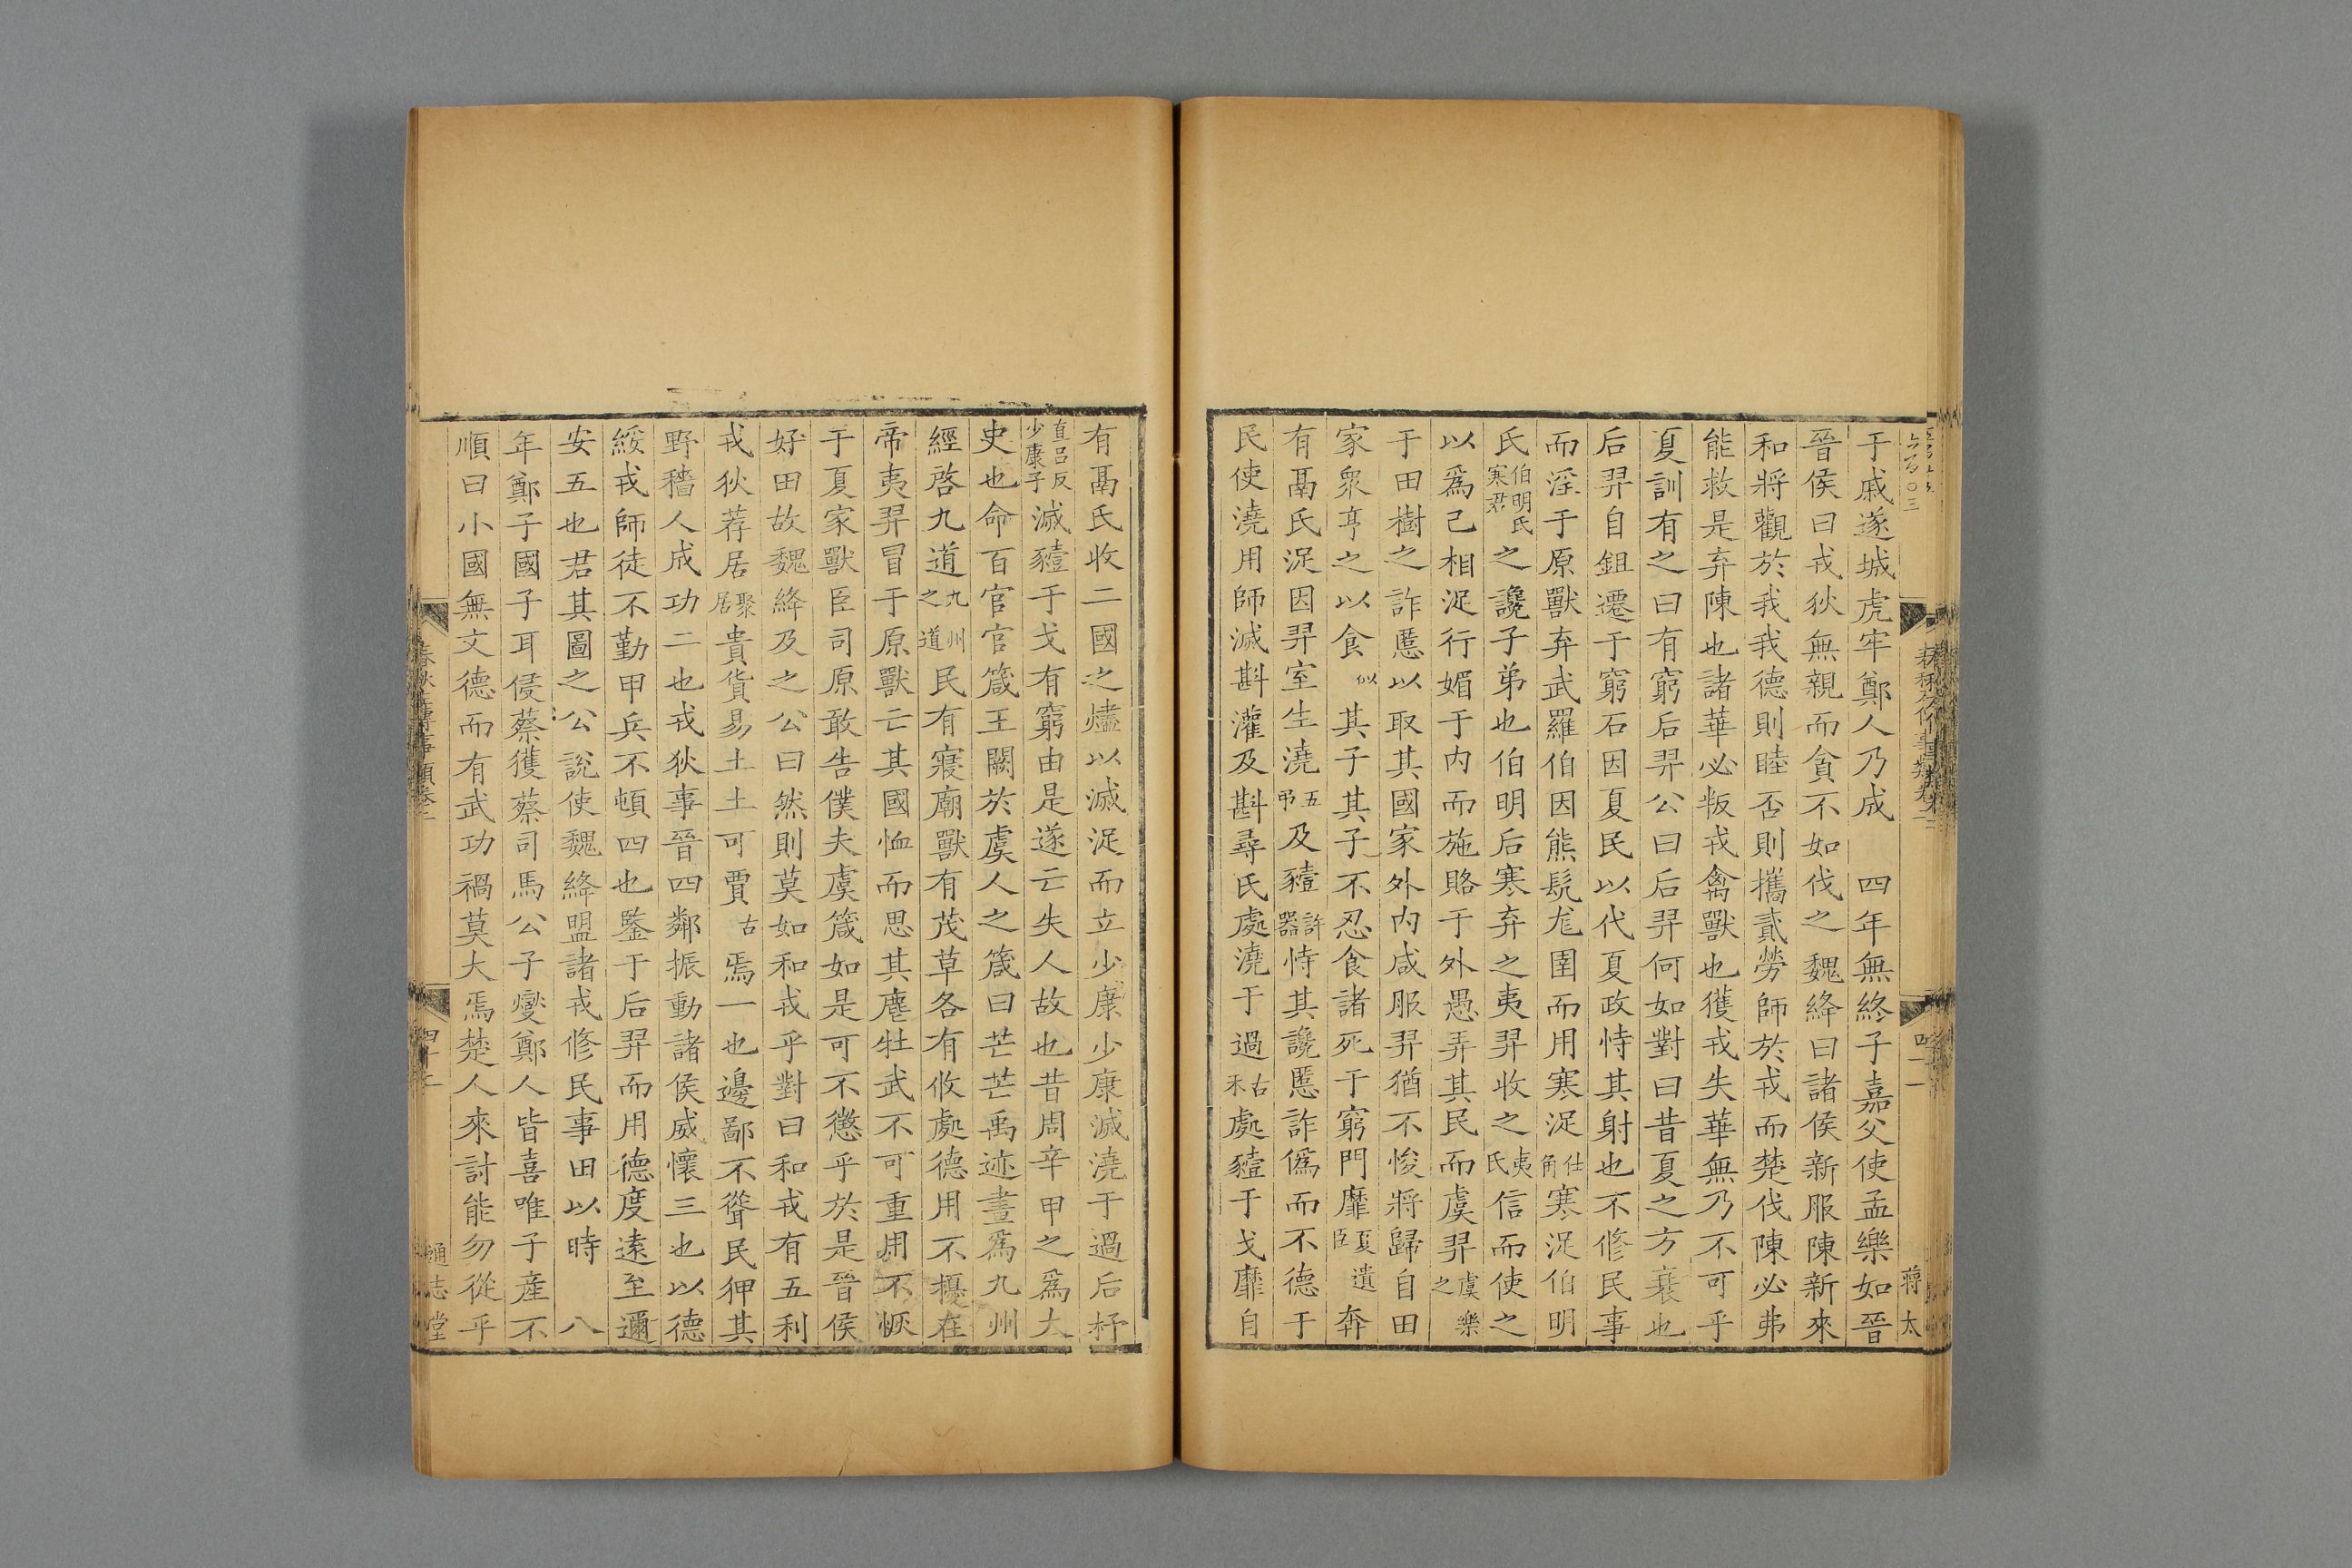 于戚遂城虎牢鄭人乃成　四年無終子嘉父使孟樂如晉
晉侯曰戎狄無親而貪不如伐之魏絳曰諸侯新服陳新來
和將觀於我我德則睦否則攜貳勞師於戎而楚伐陳必弗
能救是弃陳也諸華必叛戎禽獸也獲戎失華無乃不可乎
夏訓有之曰有窮后羿公曰后羿何如對曰昔夏之方衰也
后羿自鉏遷于窮石因夏民以代夏政恃其射也不修民事
而淫于原獸弃武羅伯因熊髡尨圉而用寒浞仕角寒浞伯明
氏伯明氏寒君之讒子弟也伯明后寒弃之夷羿收之夷氏信而使之
以爲己相浞行媚于内而施賂于外愚弄其民而虞羿虞樂之
于田樹之詐慝以取其國家外内咸服羿猶不悛將歸自田
家衆亨之以食似其子其子不忍食諸死于窮門靡夏遺臣奔
有鬲氏浞因羿室生澆五弔及豷許器恃其讒慝詐僞而不德于
民使澆用師滅斟灌及斟尋氏處澆于過古禾處豷于戈靡自
有鬲氏收二國之燼以滅浞而立少康少康滅澆于過后杼
直呂反少康子滅豷于戈有窮由是遂亡失人故也昔周辛甲之爲大
史也命百官官箴王闕於虞人之箴曰芒芒禹迹畫爲九州
經啓九道九州之道民有寢廟獸有茂草各有攸處德用不擾在
帝夷羿冒于原獸亡其國恤而思其麀牡武不可重用不恢
于夏家獸臣司原敢告僕夫虞箴如是可不懲乎於是晉侯
好田故魏絳及之公曰然則莫如和戎乎對曰和戎有五利
戎狄荐居聚居貴貨易土土可賈古焉一也邊鄙不聳民狎其
野穡人成功二也戎狄事晉四鄰振動諸侯威懷三也以德
綏戎師徒不勤甲兵不頓四也鑒于后羿而用德度遠至邇
安五也君其圖之公説使魏絳盟諸戎修民事田以時　八
年鄭子國子耳侵蔡獲蔡司馬公子燮鄭人皆喜唯子産不
順曰小國無文德而有武功禍莫大焉楚人來討能勿從乎
春秋左傳事類卷二
四十二
通志堂
蔣太